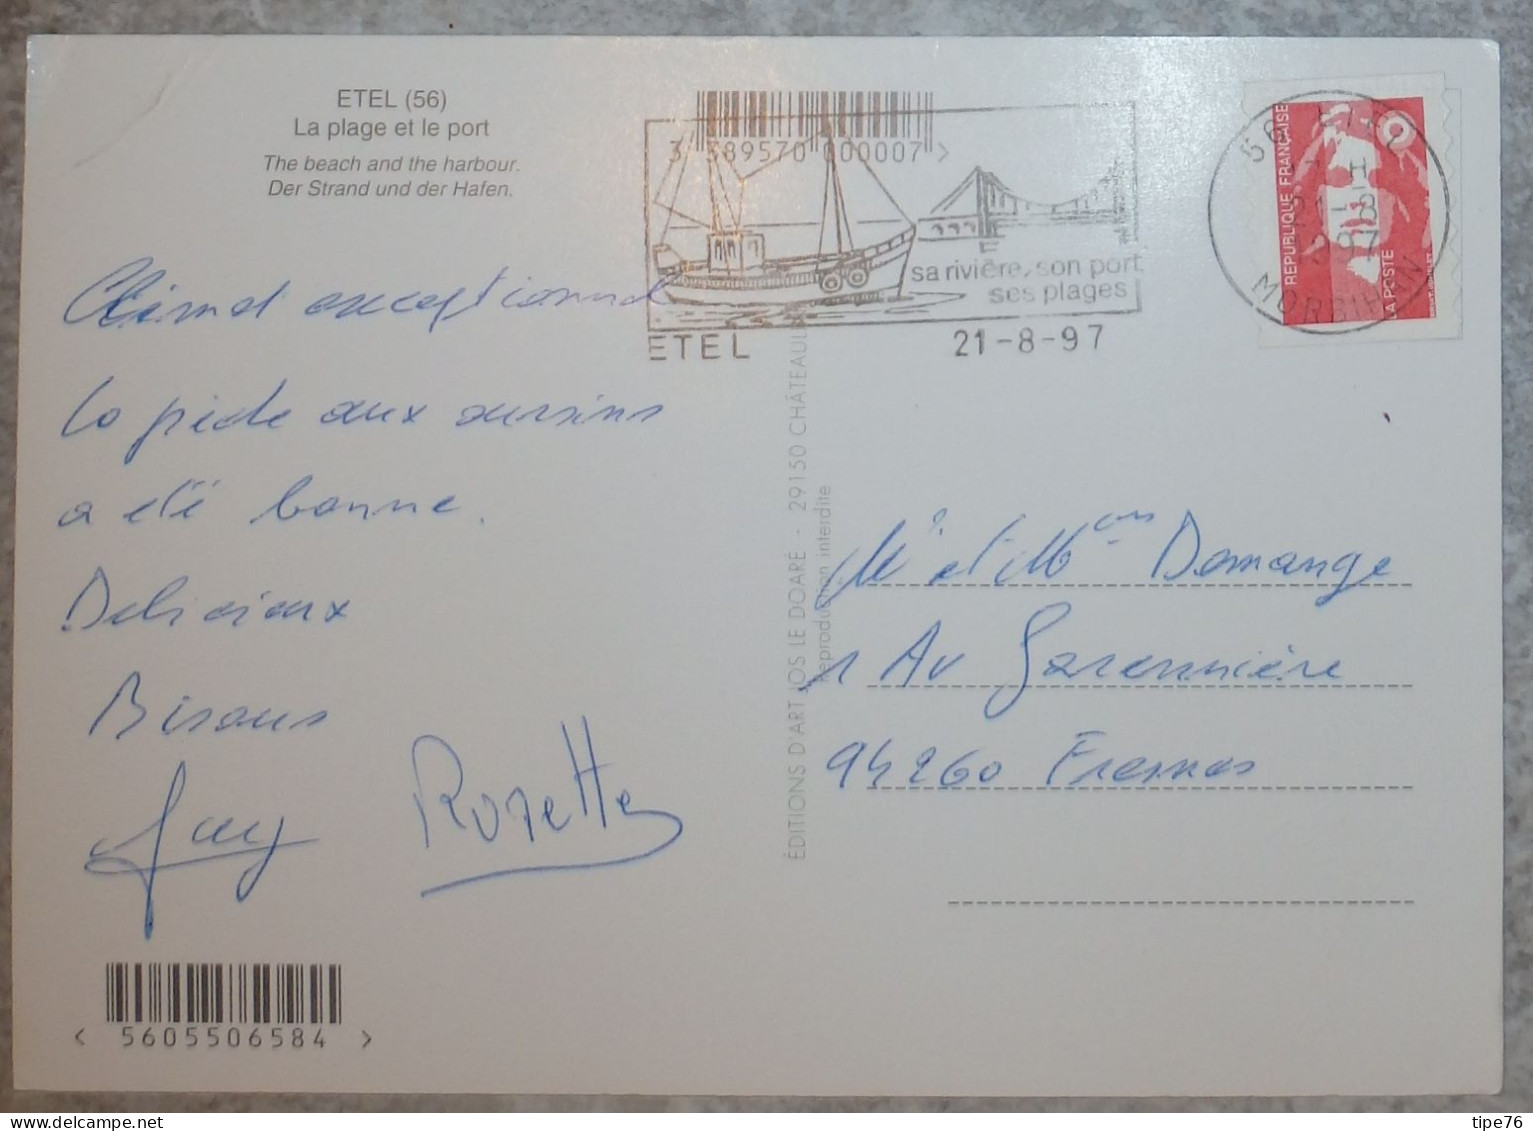 ETEL (56)
La plage et le port
The beach and the harbour.
Der Strand und der Hafen.
3 389570 000007 >
sa rivière, son port
ses plages
ETEL
21-8-97
56 ETEL
21-8
97
MORBIHAN
REPUBLIQUE FRANÇAISE
LA POSTE
Climat exceptionnel
la pêche aux oursins
a été bonne.
Delicieux
Bisous
Guy Rosette
ÉDITIONS D'ART JOS LE DOARÉ - 29150 CHÂTEAULIN
Reproduction interdite
Mr et Mme Domange
1 Av Garennière
94260 Fresnes
< 5605506584 >
delcampe.net
tipe76